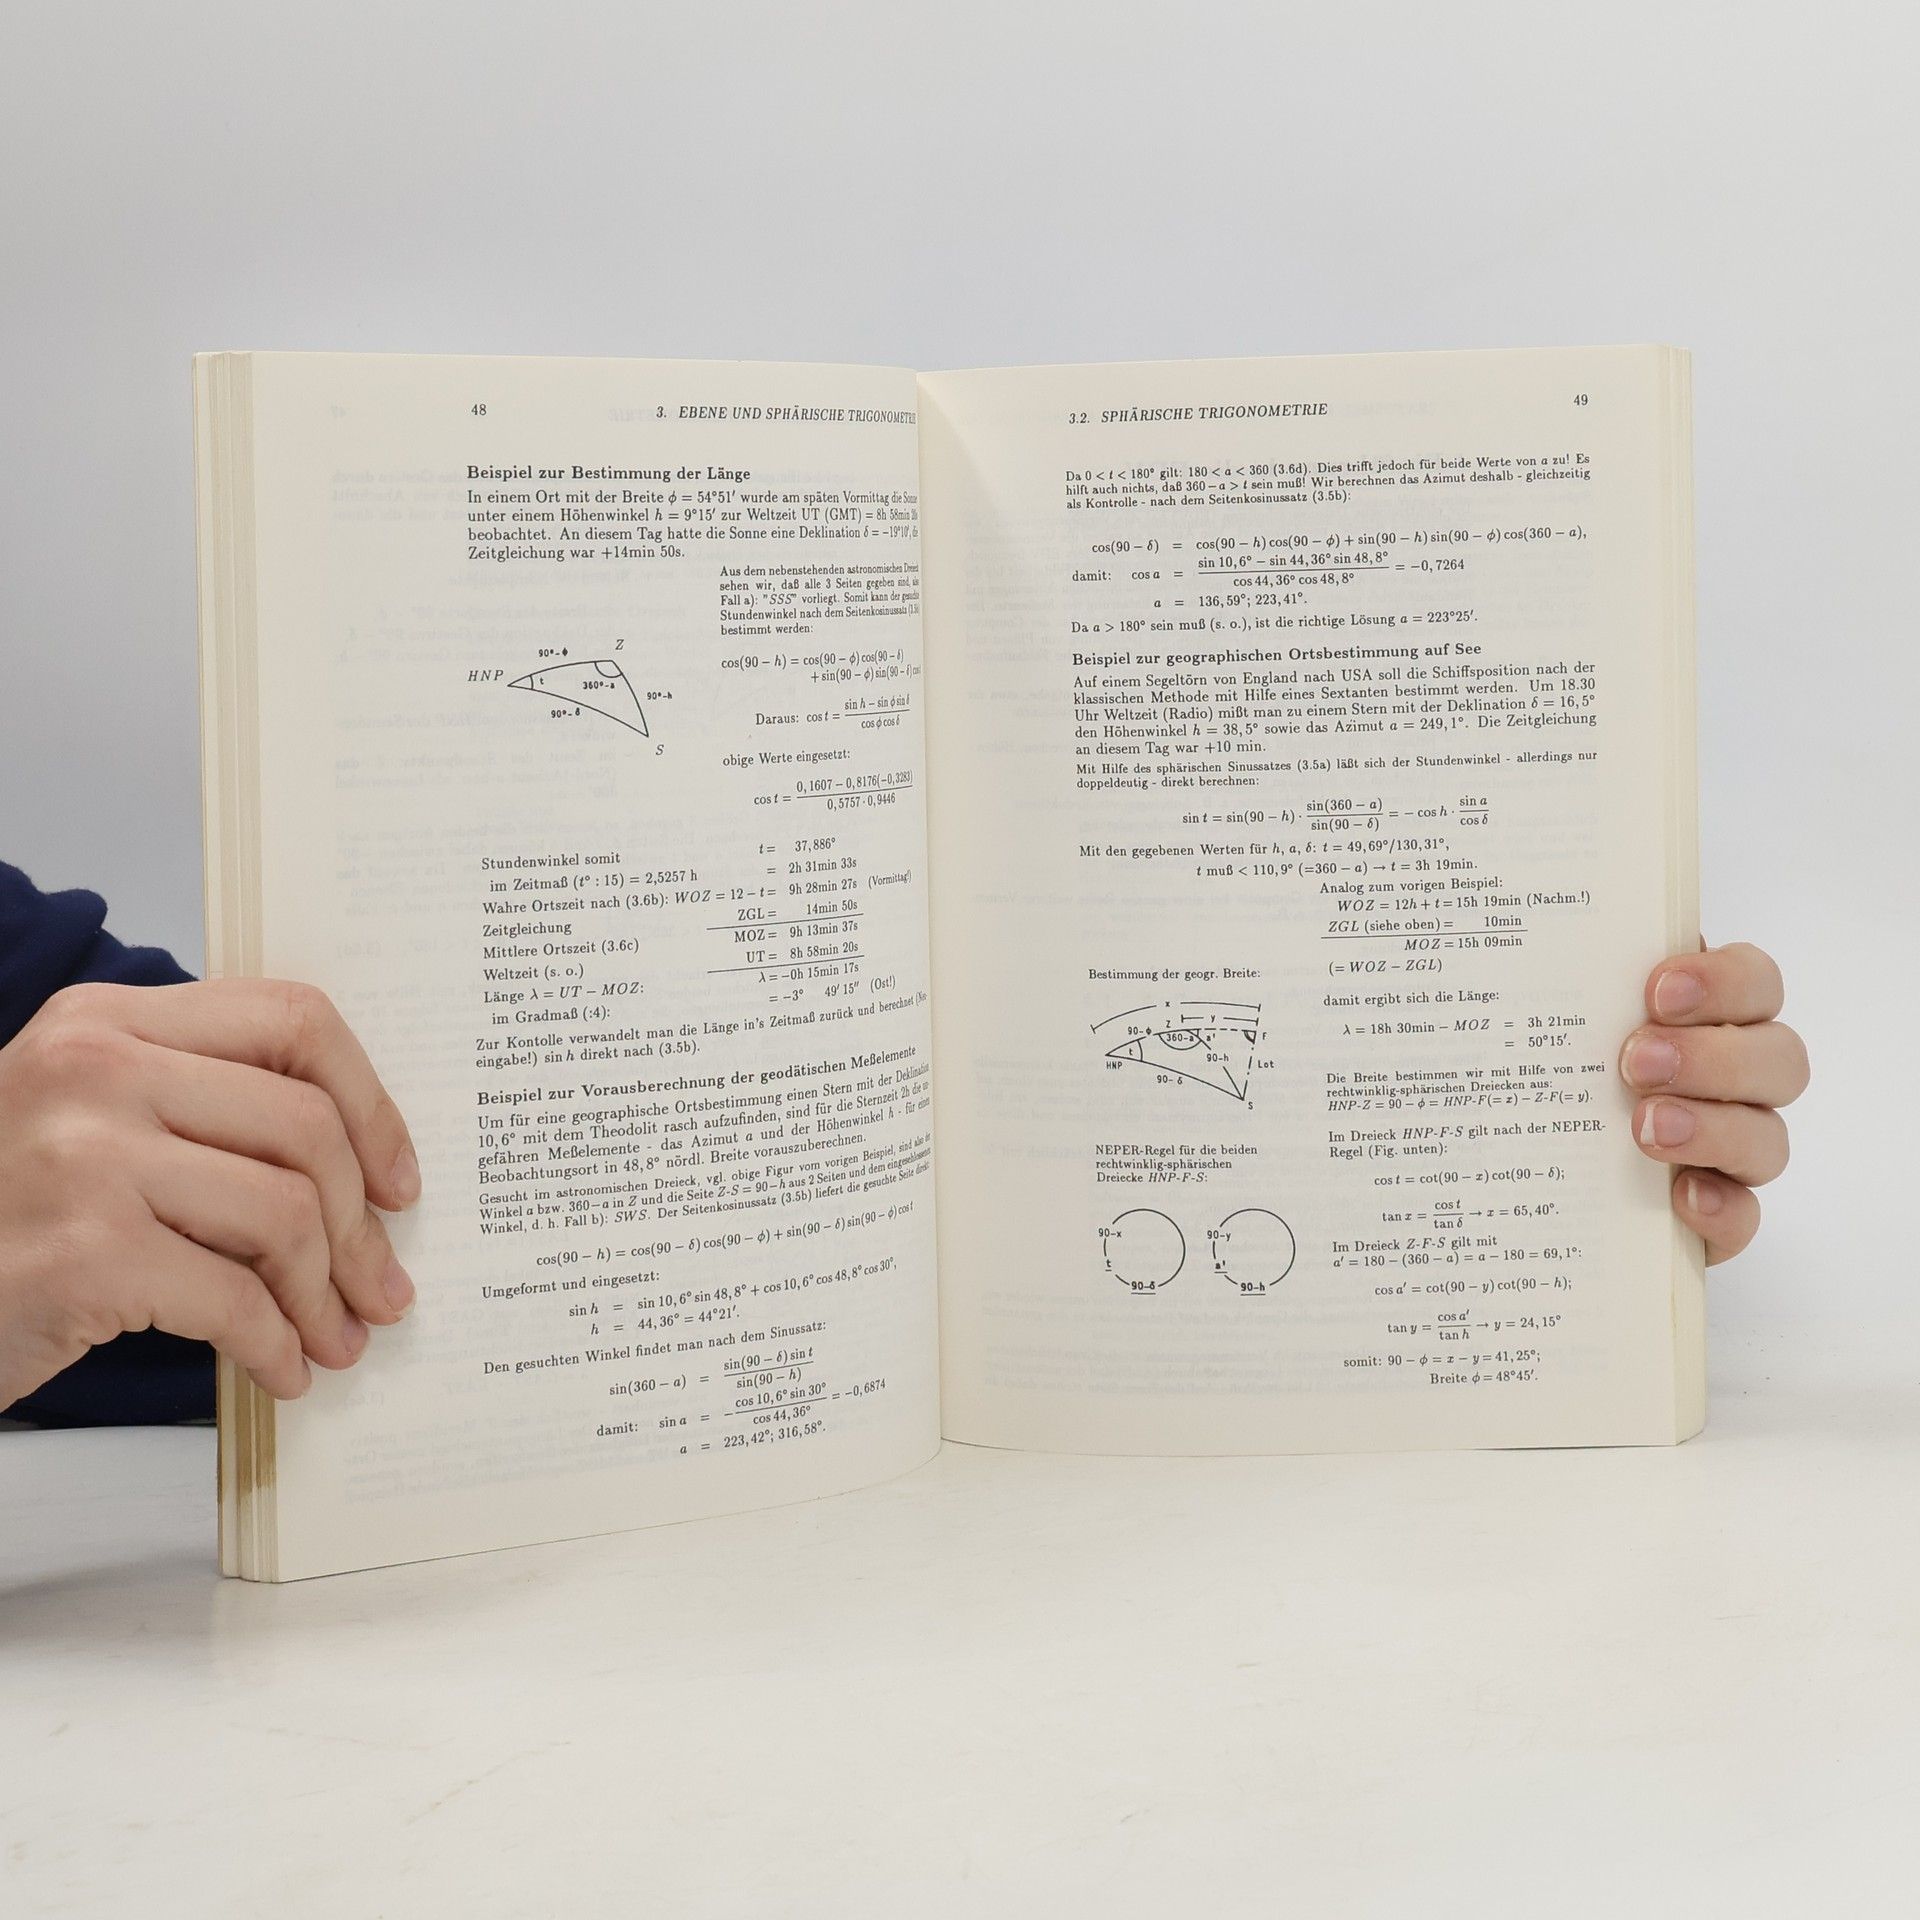 48
3. EBENE UND SPHÄRISCHE TRIGONOMETRIE
Beispiel zur Bestimmung der Länge
In einem Ort mit der Breite ϕ = 54°51′ wurde am späten Vormittag die Sonne
unter einem Höhenwinkel h = 9°15′ zur Weltzeit UT (GMT) = 8h 58min 20s
beobachtet. An diesem Tag hatte die Sonne eine Deklination δ = −19°10′, die
Zeitgleichung war +14min 50s.
Aus dem nebenstehenden astronomischen Dreieck
sehen wir, daß alle 3 Seiten gegeben sind, also
Fall a): "SSS" vorliegt. Somit kann der gesuchte
Stundenwinkel nach dem Seitenkosinussatz (3.5b)
bestimmt werden:
HNP
90°-ϕ
Z
t
360°-a
90°-h
90°-δ
S
cos(90 − h) = cos(90 − ϕ) cos(90 − δ)
+ sin(90 − ϕ) sin(90 − δ) cos t
Daraus: cos t = (sin h − sin ϕ sin δ) / (cos ϕ cos δ)
obige Werte eingesetzt:
cos t = (0,1607 − 0,8176(−0,3283)) / (0,5757 · 0,9446)
Stundenwinkel somit t = 37,886°
im Zeitmaß (t° : 15) = 2,5257 h = 2h 31min 33s
Wahre Ortszeit nach (3.6b): WOZ = 12 − t = 9h 28min 27s (Vormittag!)
Zeitgleichung ZGL = 14min 50s
Mittlere Ortszeit (3.6c) MOZ = 9h 13min 37s
Weltzeit (s. o.) UT = 8h 58min 20s
Länge λ = UT − MOZ: λ = −0h 15min 17s
im Gradmaß (:4): = −3° 49′ 15″ (Ost!)
Zur Kontolle verwandelt man die Länge in's Zeitmaß zurück und berechnet (Neu-
eingabe!) sin h direkt nach (3.5b).
Beispiel zur Vorausberechnung der geodätischen Meßelemente
Um für eine geographische Ortsbestimmung einen Stern mit der Deklination
10,6° mit dem Theodolit rasch aufzufinden, sind für die Sternzeit 2h die un-
gefähren Meßelemente - das Azimut a und der Höhenwinkel h - für einen
Beobachtungsort in 48,8° nördl. Breite vorauszuberechnen.
Gesucht im astronomischen Dreieck, vgl. obige Figur vom vorigen Beispiel, sind also der
Winkel a bzw. 360−a in Z und die Seite Z-S = 90−h aus 2 Seiten und dem eingeschlossenen
Winkel, d. h. Fall b): SWS. Der Seitenkosinussatz (3.5b) liefert die gesuchte Seite direkt:
cos(90 − h) = cos(90 − δ) cos(90 − ϕ) + sin(90 − δ) sin(90 − ϕ) cos t
Umgeformt und eingesetzt:
sin h = sin 10,6° sin 48,8° + cos 10,6° cos 48,8° cos 30°,
h = 44,36° = 44°21′.
Den gesuchten Winkel findet man nach dem Sinussatz:
sin(360 − a) = sin(90 − δ) sin t / sin(90 − h)
damit: sin a = − cos 10,6° sin 30° / cos 44,36° = −0,6874
a = 223,42°; 316,58°.
3.2. SPHÄRISCHE TRIGONOMETRIE
49
Da 0 < t < 180° gilt: 180 < a < 360 (3.6d). Dies trifft jedoch für beide Werte von a zu! Es
hilft auch nichts, daß 360 − a > t sein muß! Wir berechnen das Azimut deshalb - gleichzeitig
als Kontrolle - nach dem Seitenkosinussatz (3.5b):
cos(90 − δ) = cos(90 − h) cos(90 − ϕ) + sin(90 − h) sin(90 − ϕ) cos(360 − a),
damit: cos a = (sin 10,6° − sin 44,36° sin 48,8°) / (cos 44,36° cos 48,8°) = −0,7264
a = 136,59°; 223,41°.
Da a > 180° sein muß (s. o.), ist die richtige Lösung a = 223°25′.
Beispiel zur geographischen Ortsbestimmung auf See
Auf einem Segeltörn von England nach USA soll die Schiffsposition nach der
klassischen Methode mit Hilfe eines Sextanten bestimmt werden. Um 18.30
Uhr Weltzeit (Radio) mißt man zu einem Stern mit der Deklination δ = 16,5°
den Höhenwinkel h = 38,5° sowie das Azimut a = 249,1°. Die Zeitgleichung
an diesem Tag war +10 min.
Mit Hilfe des sphärischen Sinussatzes (3.5a) läßt sich der Stundenwinkel - allerdings nur
doppeldeutig - direkt berechnen:
sin t = sin(90 − h) · sin(360 − a) / sin(90 − δ) = − cos h · sin a / cos δ
Mit den gegebenen Werten für h, a, δ: t = 49,69°/130,31°,
t muß < 110,9° (=360 − a) → t = 3h 19min.
Analog zum vorigen Beispiel:
WOZ = 12h + t = 15h 19min (Nachm.!)
ZGL (siehe oben) = 10min
MOZ = 15h 09min
(= WOZ − ZGL)
Bestimmung der geogr. Breite:
x
y
90-ϕ
Z
360-a
a'
F
t
HNP
90-h
Lot
90-δ
S
damit ergibt sich die Länge:
λ = 18h 30min − MOZ = 3h 21min
= 50°15′.
Die Breite bestimmen wir mit Hilfe von zwei
rechtwinklig-sphärischen Dreiecken aus:
HNP-Z = 90 − ϕ = HNP-F(= x) − Z-F(= y).
Im Dreieck HNP-F-S gilt nach der NEPER-
Regel (Fig. unten):
cos t = cot(90 − x) cot(90 − δ);
tan x = cos t / tan δ → x = 65,40°.
Im Dreieck Z-F-S gilt mit
a′ = 180 − (360 − a) = a − 180 = 69,1°:
cos a′ = cot(90 − y) cot(90 − h);
tan y = cos a′ / tan h → y = 24,15°
somit: 90 − ϕ = x − y = 41,25°;
Breite ϕ = 48°45′.
NEPER-Regel für die beiden
rechtwinklig-sphärischen
Dreiecke HNP-F-S:
90-x
t
90-δ
90-y
a'
90-h